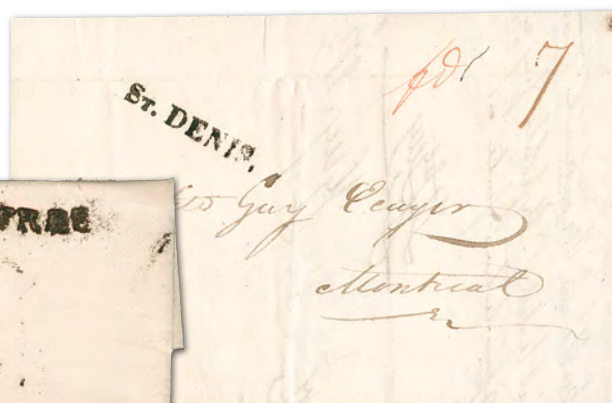 pd 7
ST. DENIS,
Guy Ecuyer
Montreal
FREE